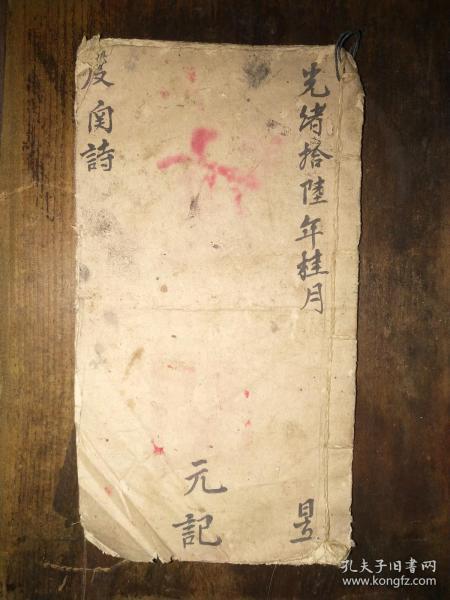 光緒拾陸年桂月
元記
南詩
孔夫子旧书网
www.kongfz.com